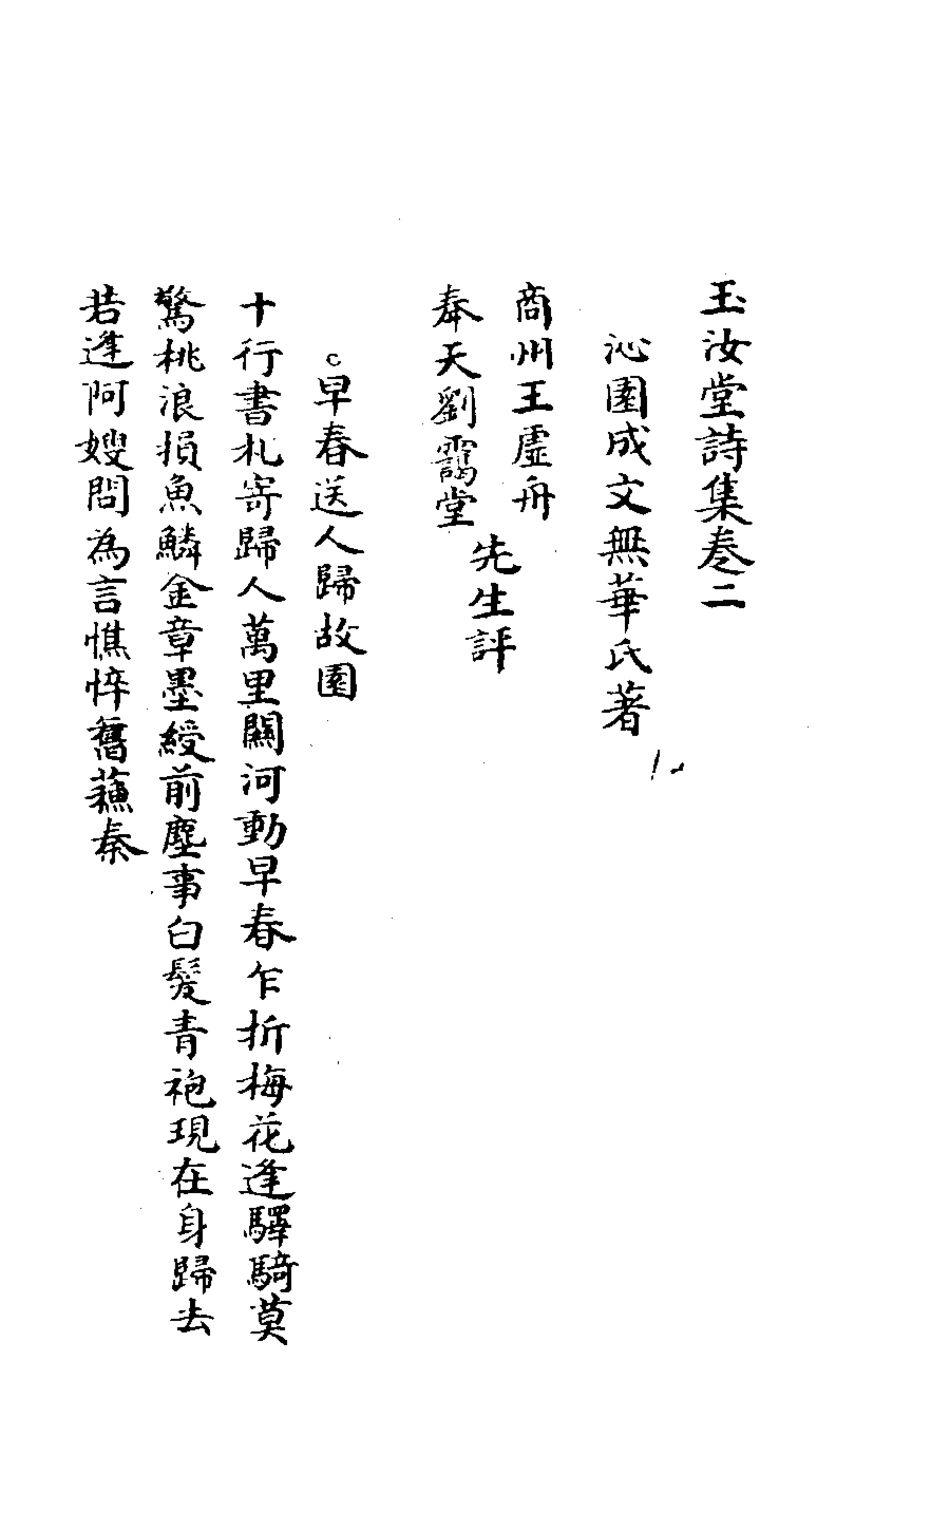 玉汝堂詩集卷二
沁園成文無華氏著
商州王虛舟
奉天劉靄堂
先生評
早春送人歸故園
十行書札寄歸人萬里關河動早春乍折梅花逢驛騎莫
驚桃浪損魚鱗金章墨綬前塵事白髮青袍現在身歸去
若逢阿嫂問為言憔悴舊蘓秦